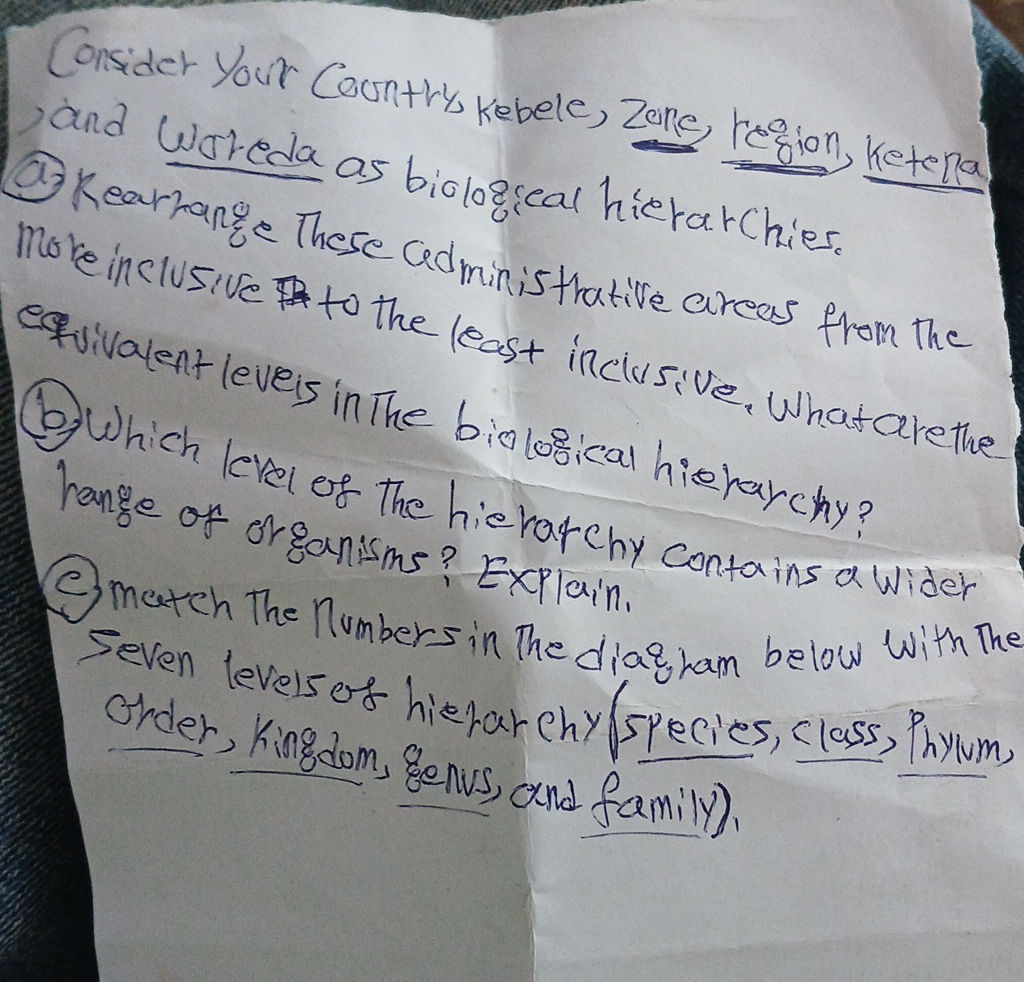 Consider Your Country, Kebele, Zone, region, Ketena
, and Woreda as biological hierarchies.
(a) Rearrange These administrative areas from The
more inclusive to the least inclusive. What are The
equivalent levels in The biological hierarchy?
(b) Which level of The hierarchy contains a wider
range of organisms? Explain.
(c) match The Numbers in The diagram below With The
Seven levels of hierarchy (species, class, Phylum,
order, Kingdom, genus, and family).